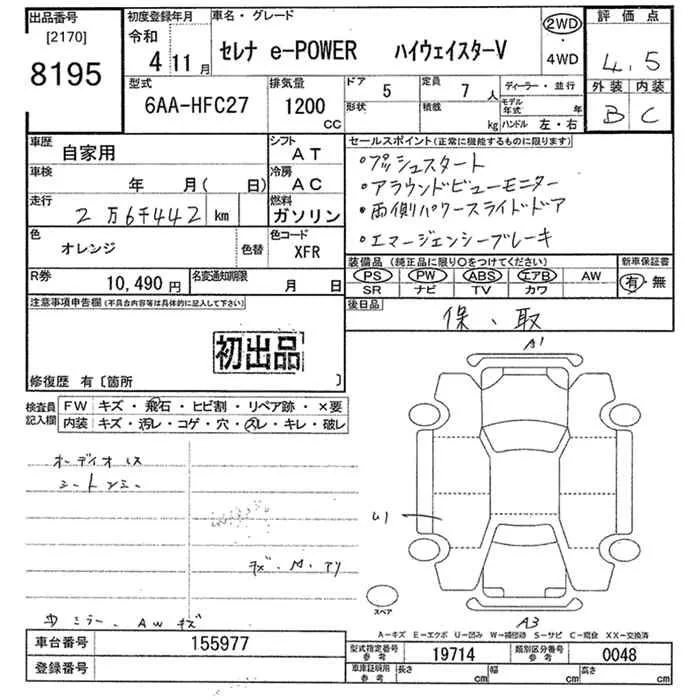 出品番号
[2170]
8195
初度登録年月
令和
4 11月
車名・グレード
セレナ e-POWER ハイウェイスターV
2WD
・
4WD
評価点
4.5
外装 内装
B C
型式
6AA-HFC27
排気量
1200
cc
ドア
5
形状
定員
7人
積載
kg
ディーラー・並行
モデル年式 年
ハンドル 左・右
車歴
自家用
シフト
AT
車検
年 月( 日)
冷房
AC
走行
2万6千442 km
燃料
ガソリン
色
オレンジ
色替
色コード
XFR
R券
10,490円
名変通知期限
月 日
セールスポイント(正常に機能するものに限ります)
・プッシュスタート
・アラウンドビューモニター
・両側パワースライドドア
・エマージェンシーブレーキ
装備品(純正品に限り○をつけてください)
PS PW ABS エアB AW
SR ナビ TV カワ
新車保証書
有・無
後日品
保、取
注意事項申告欄(不具合内容等は具体的に記入して下さい)
初出品
修復歴 有〔箇所 〕
検査員
記入欄
FW キズ・飛石・ヒビ割・リペア跡・×要
内装 キズ・汚レ・コゲ・穴・スレ・キレ・破レ
オーディオレス
シートシミ
キズ.M.アリ
ミラー、AWキズ
A1
U1
A3
スペア
A-キズ E-エクボ U-凹み W-補修跡 S-サビ C-腐食 XX-交換済
車台番号
155977
登録番号
型式指定番号
参考
19714
類別区分番号
参考
0048
車庫証明用
参考
長さ cm
幅 cm
高さ cm